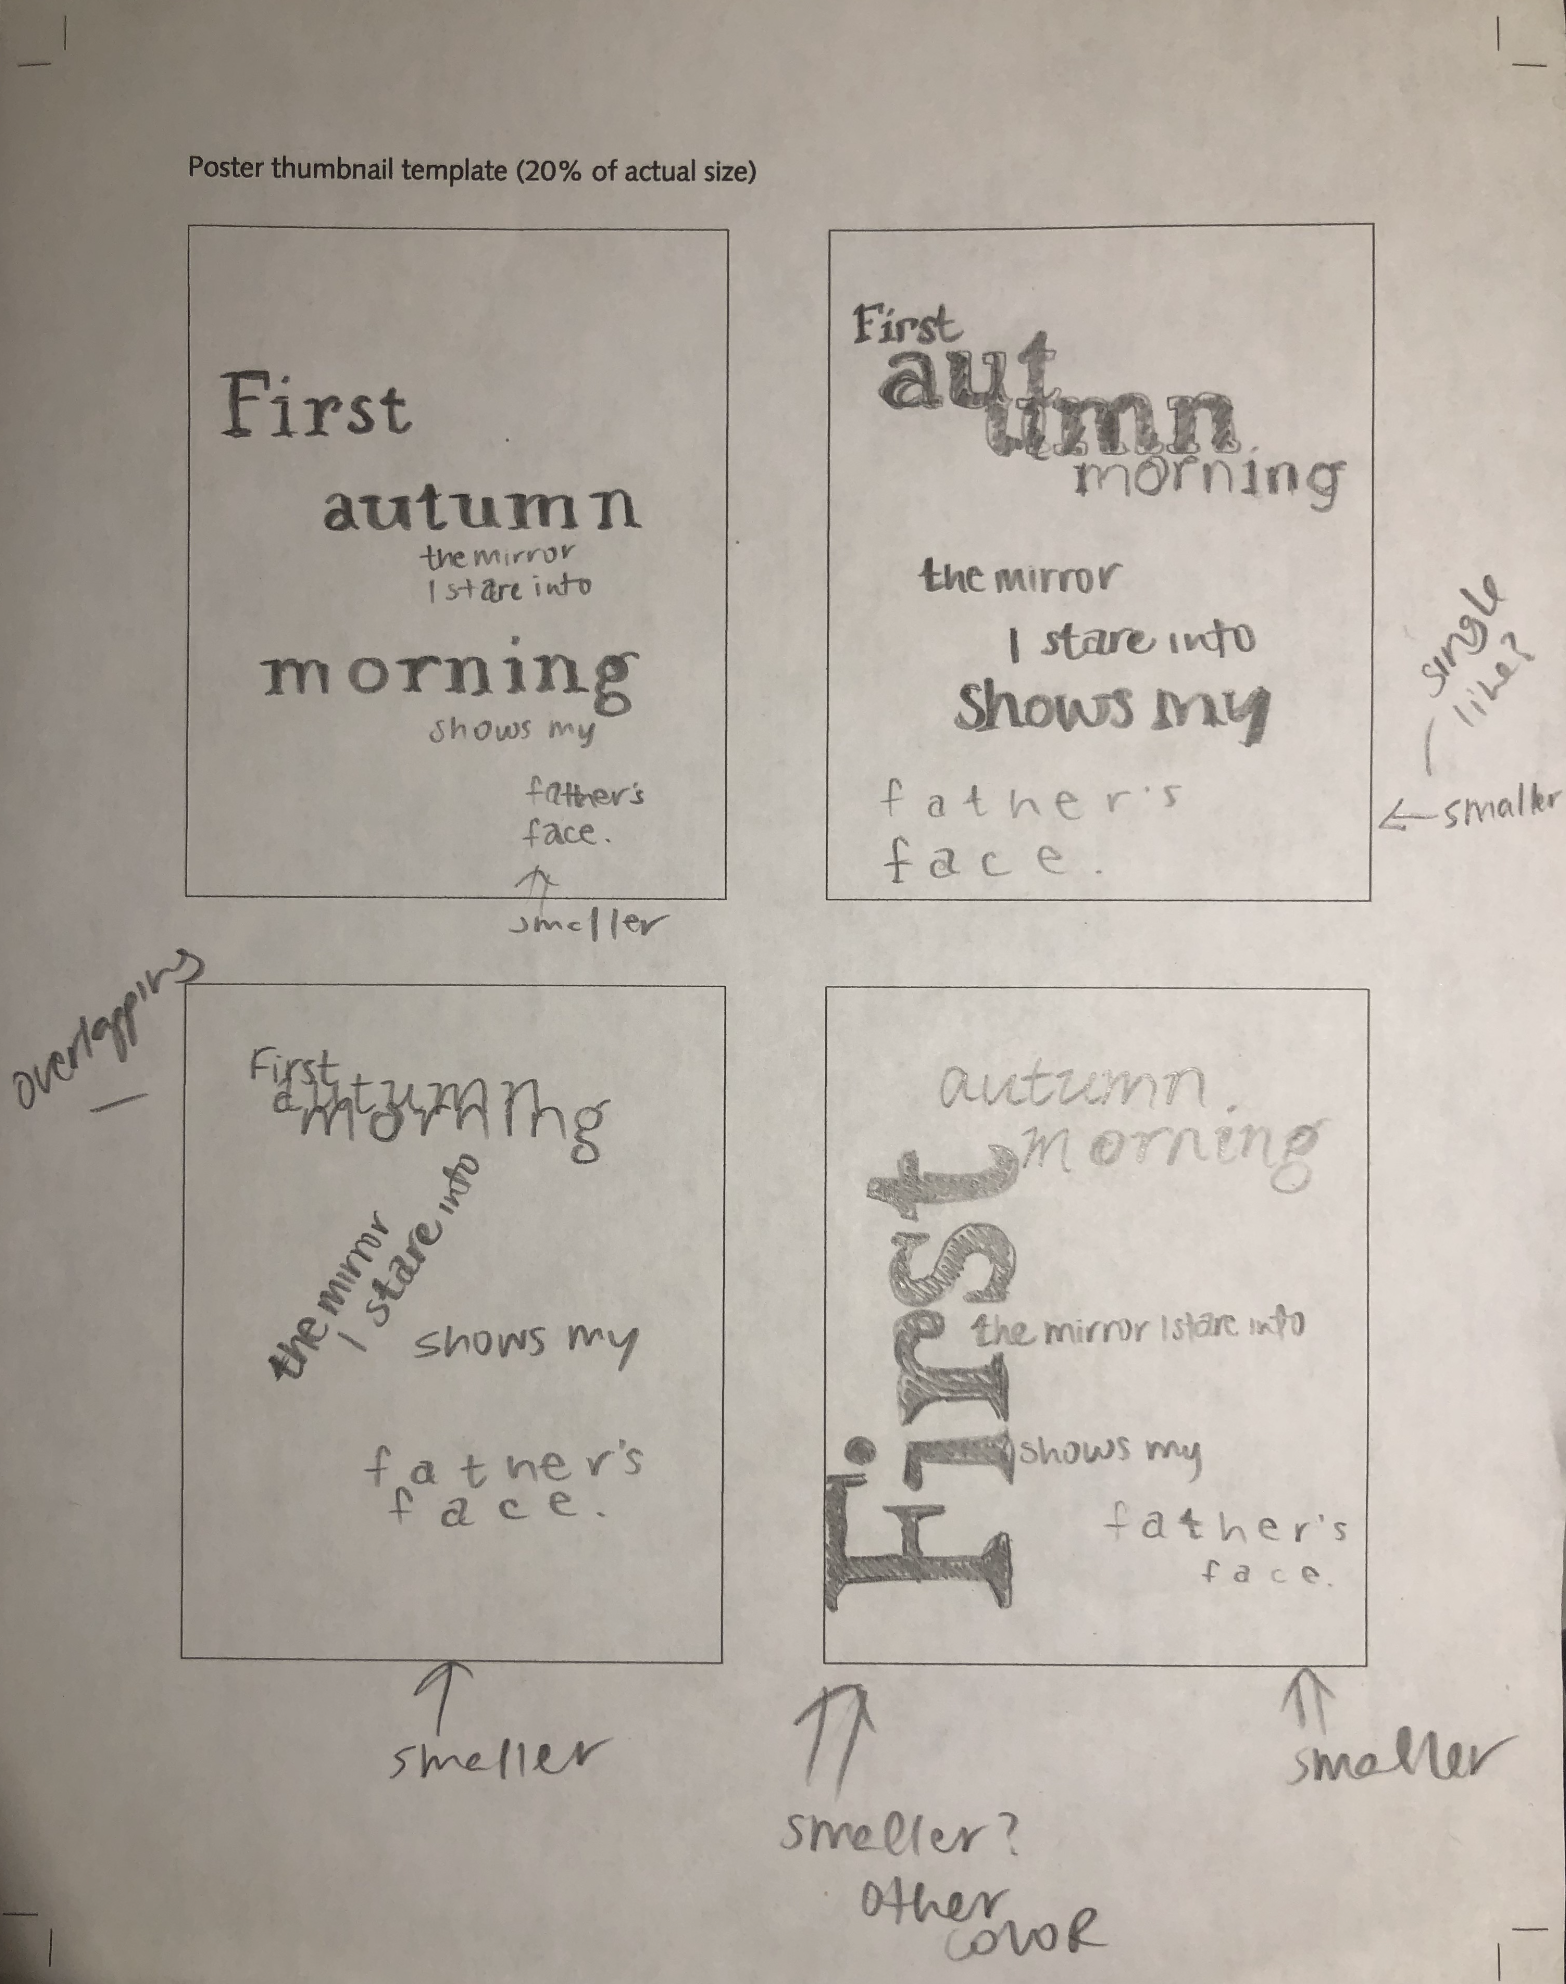 Poster thumbnail template (20% of actual size)
First
autumn
the mirror
I stare into
morning
shows my
father's
face.
smaller
First
aut
umn
morning
the mirror
I stare into
shows my
father's
face.
single
line?
smaller
overlapping
First
autumn
morning
the mirror
I stare into
shows my
father's
face.
smaller
autumn
morning
First
the mirror I stare into
shows my
father's
face.
smaller?
other
COLOR
smaller